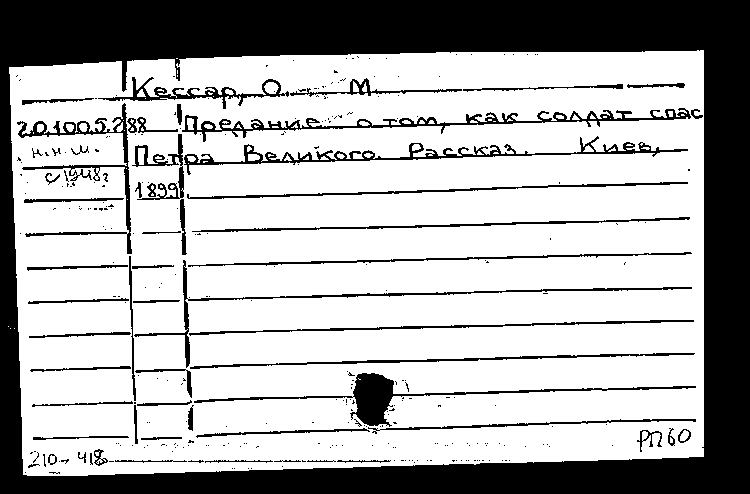 Кессар, О. М.
20.100.5.288 Предание о том, как солдат спас
н.н.ш. Петра Великого. Рассказ. Киев,
с 1948г 1899
210-418 РП60